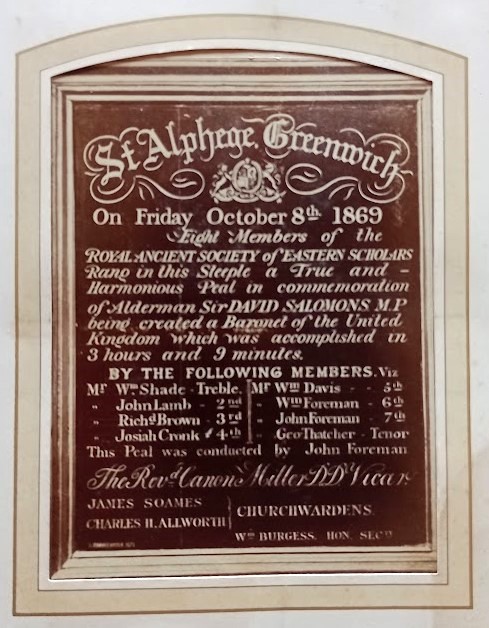 St Alphege, Greenwich
On Friday October 8th 1869
Eight Members of the
ROYAL ANCIENT SOCIETY of EASTERN SCHOLARS
Rang in this Steeple a True and -
Harmonious Peal in commemoration
of Alderman Sir DAVID SALOMONS M.P
being created a Baronet of the United
Kingdom which was accomplished in
3 hours and 9 minutes.
BY THE FOLLOWING MEMBERS. Viz
Mr Wm Shade - Treble. Mr Wm Davis - - 5th
" John Lamb - 2nd " Wm Foreman - 6th
" Richd Brown - 3rd " John Foreman - 7th
" Josiah Cronk 4th " Geo Thatcher - Tenor
This Peal was conducted by John Foreman
The Revd Canon Miller D.D. Vicar
JAMES SOAMES
CHARLES H. ALLWORTH CHURCHWARDENS.
Wm BURGESS. HON. SECY